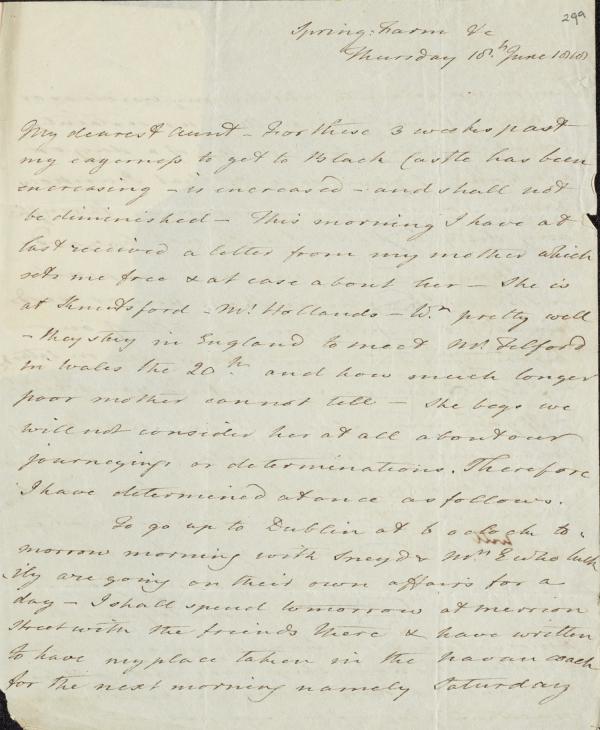 299
Spring: Farm &c
Thursday 18.th June 1818
My dearest Aunt - For these 3 weeks past
my eagerness to get to Black Castle has been
encreasing - is encreased - and shall not
be diminished - This morning I have at
last received a letter from my mother which
sets me free & at ease about her - She is
at Knutsford - Mr Hollands - Wm pretty well
- they stay in England to meet Mr. Telford
in Wales the 20th and how much longer
poor mother cannot tell - She begs we
will not consider her at all about our
journeyings or determinations. Therefore
I have determined at once as follows.
To go up to Dublin at 6 oclock to-
morrow morning with Sneyd & Mrs E who luck
ily are going on their own affairs for a
day - I shall spend tomorrow at merrion
street with the friends there & have written
to have my place taken in the Navan coach
for the next morning namely Saturday